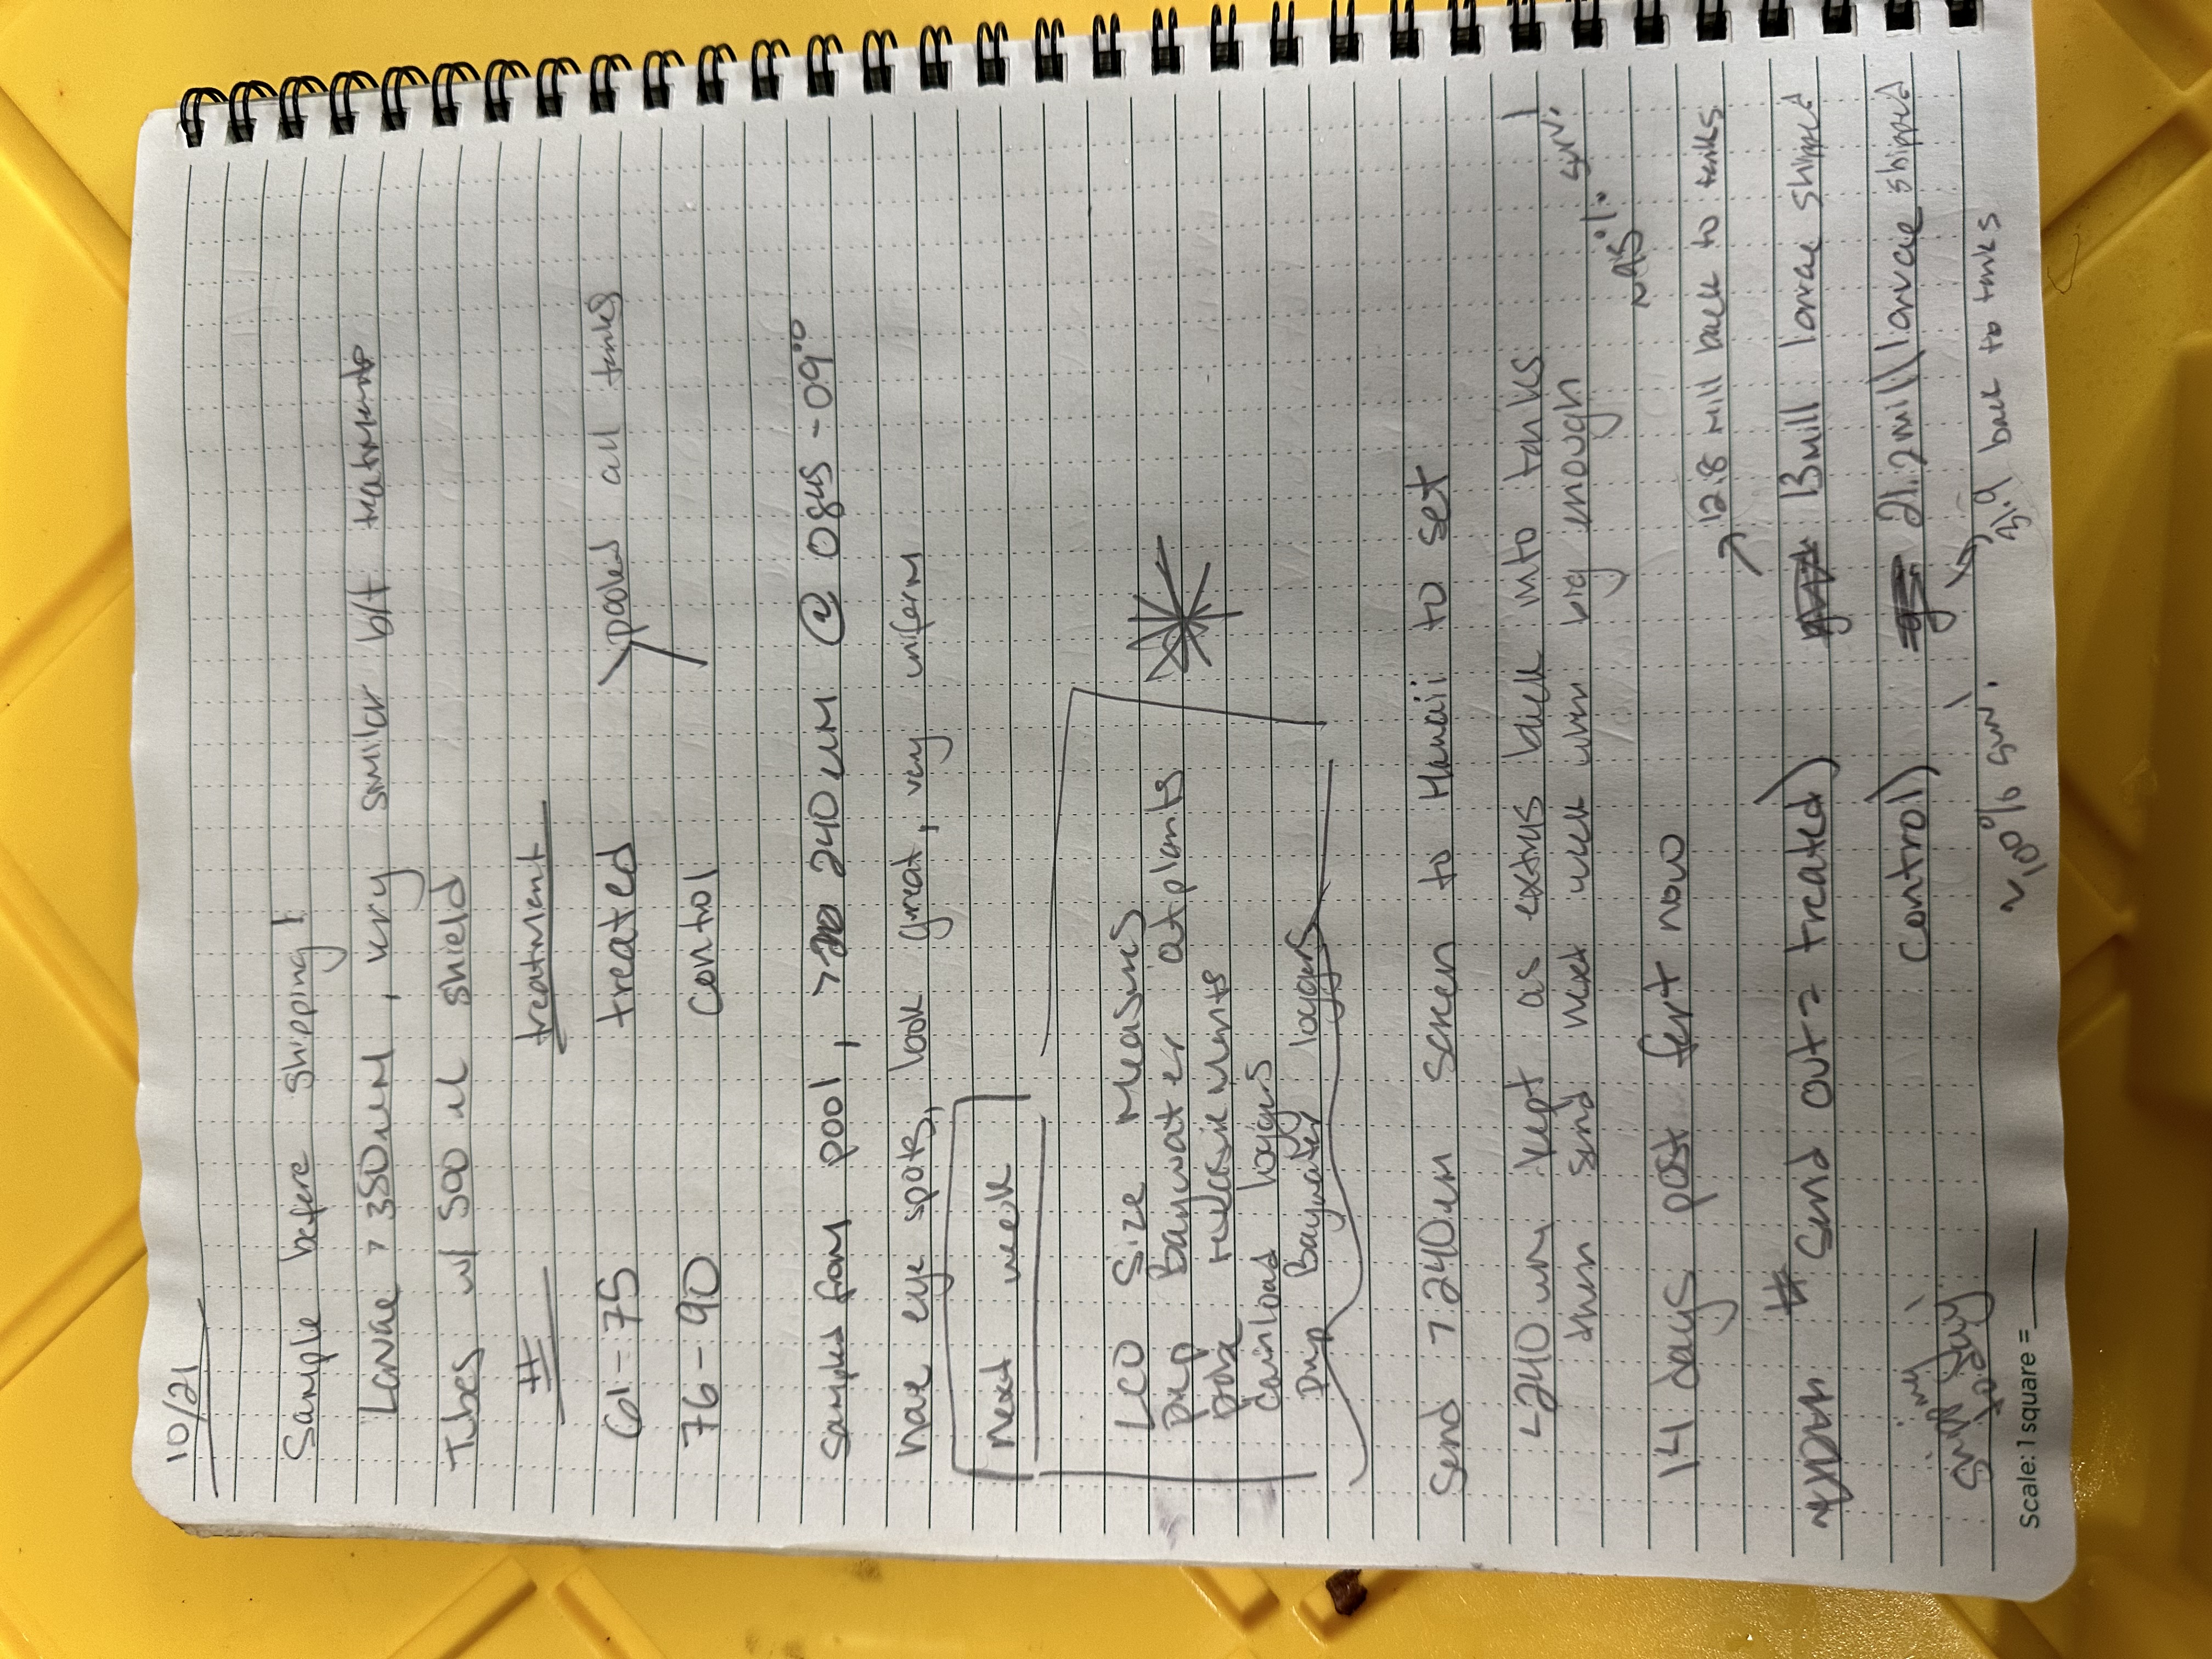 10/21
Sample before shipping!
Larvae > 350 uM, very similar b/t treatments
Tubes w/ 500 ul shield
# treatment
61-75 treated pooled all tanks
76-90 control
sampled from pool, > 240 uM @ 0845 - 0900
have eye spots, look great, very uniform
next week
LCO Size Measures
prep Baywater outplants
measurements
download loggers
prep Baywater loggers
Send >240 um screen to Hawaii to set
<240 um kept as extras back into tanks
then send next week when big enough
~95% surv!
14 days post fert now
→ 12.8 mill back to tanks
# send out = treated) 13 mill larvae shipped
control) 21.2 mill larvae shipped
shipping today!
~100% surv!
→ 31.9 back to tanks
Scale: 1 square =